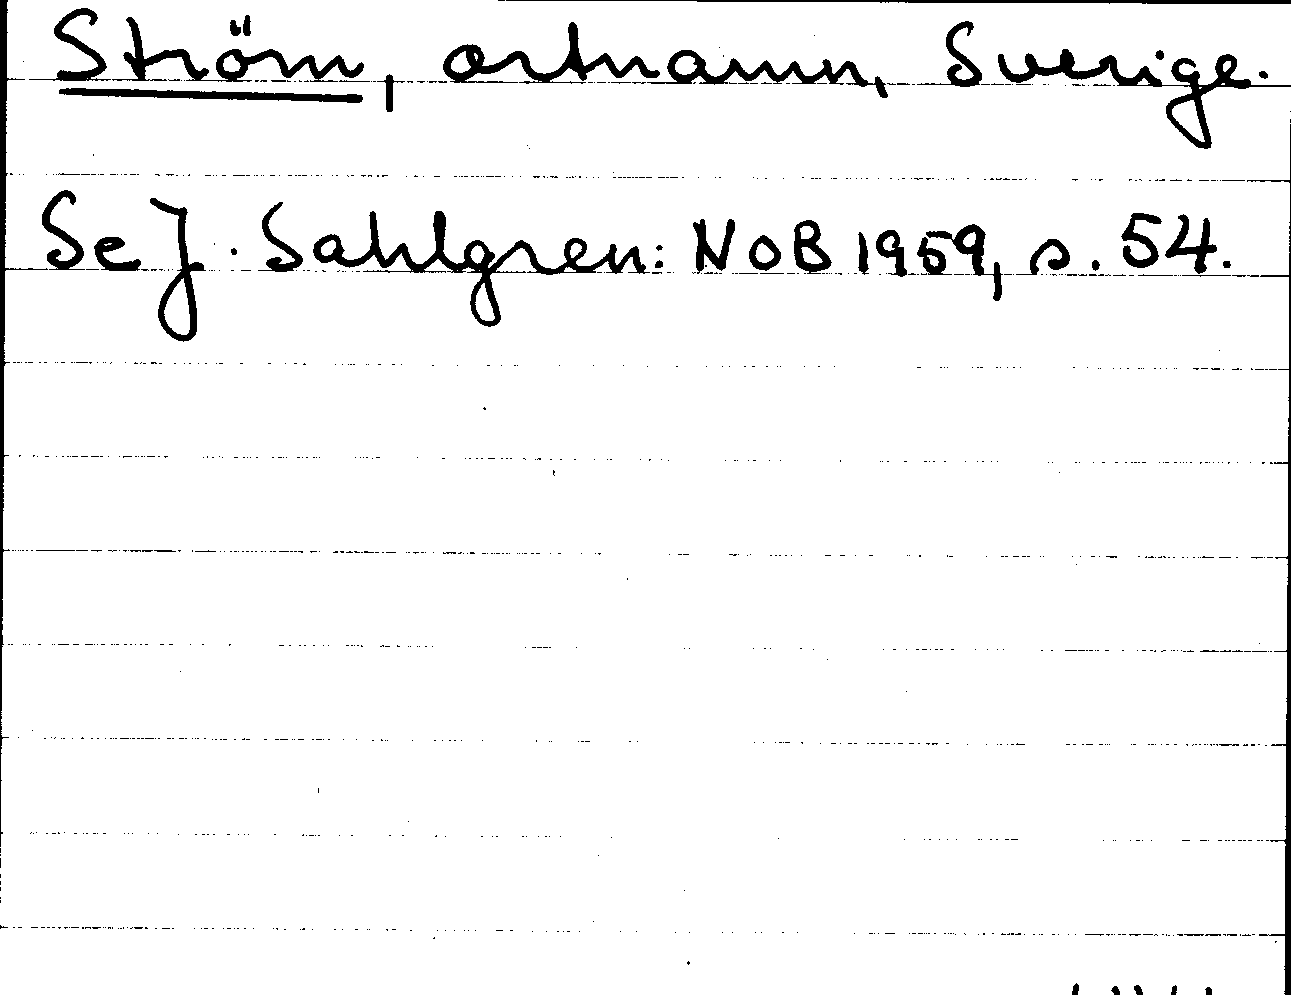 Ström, ortnamn, Sverige.
Se J. Sahlgren: NoB 1959, s. 54.